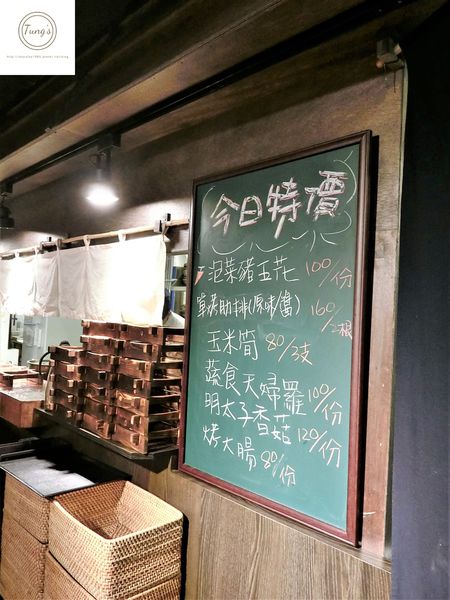 Tung's
今日特價
泡菜豬五花 100/份
單點肋排(原味/醬) 160/2根
玉米筒 80/3支
蔬食天婦羅 100/份
明太子香菇 120/份
烤大腸 80/份